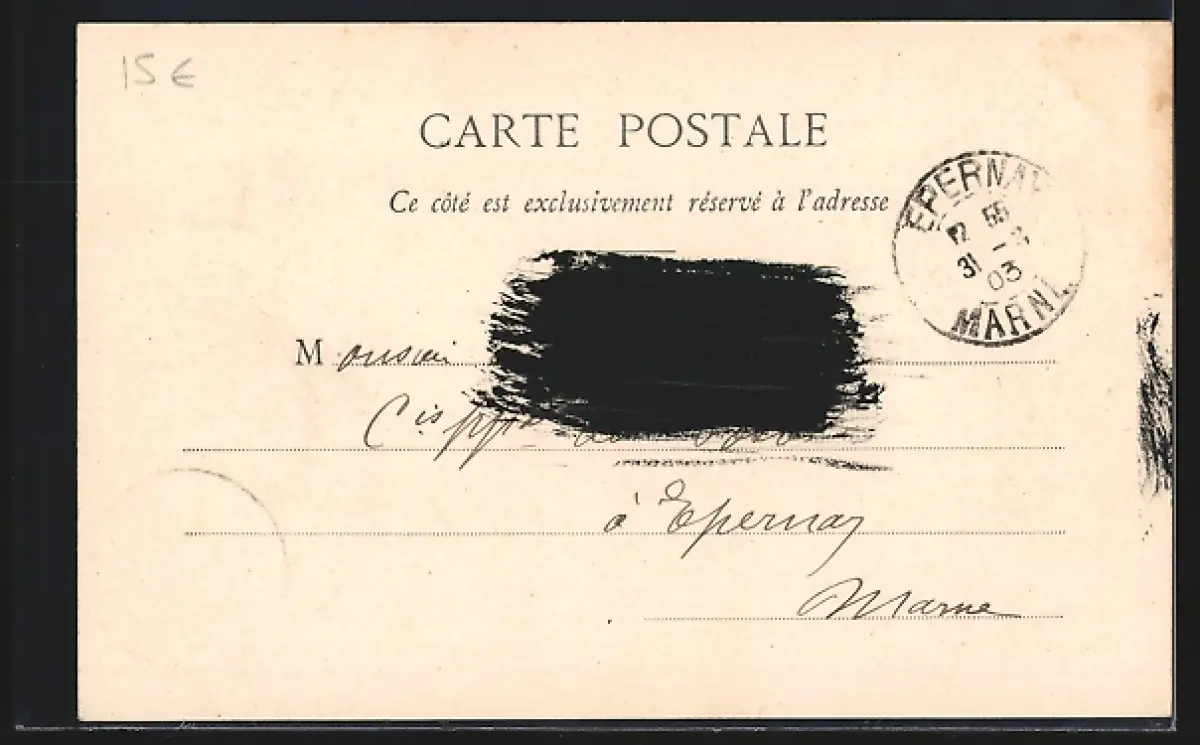 15 €
CARTE POSTALE
Ce côté est exclusivement réservé à l'adresse
EPERNAY
12 55
31 -
03
MARNE
Monsieur
Cis ppal
à Epernay
Marne